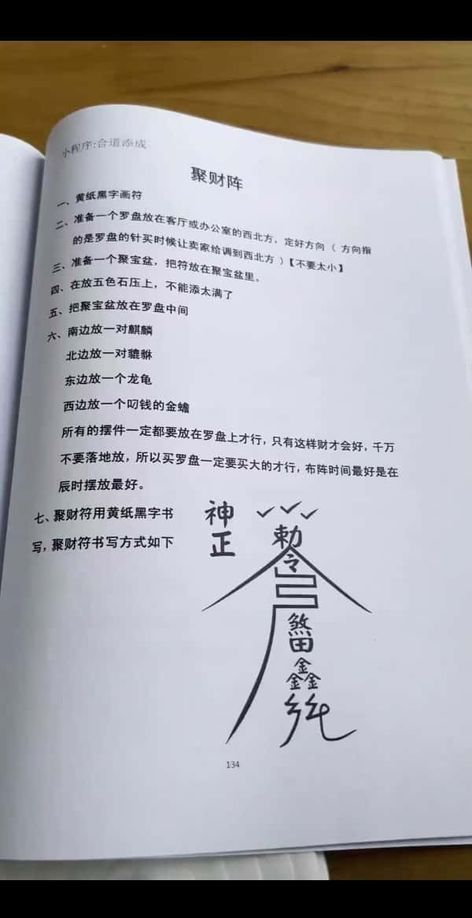 小程序:合道添成
聚财阵
一、黄纸黑字画符
二、准备一个罗盘放在客厅或办公室的西北方，定好方向（ 方向指
的是罗盘的针买时候让卖家给调到西北方 ）【不要太小】
三、准备一个聚宝盆，把符放在聚宝盆里。
四、在放五色石压上，不能添太满了
五、把聚宝盆放在罗盘中间
六、南边放一对麒麟
北边放一对貔貅
东边放一个龙龟
西边放一个叼钱的金蟾
所有的摆件一定都要放在罗盘上才行，只有这样财才会好，千万
不要落地放，所以买罗盘一定要买大的才行，布阵时间最好是在
辰时摆放最好。
七、聚财符用黄纸黑字书
写，聚财符书写方式如下
神正
敕令
煞
田
鑫鑫鑫
134